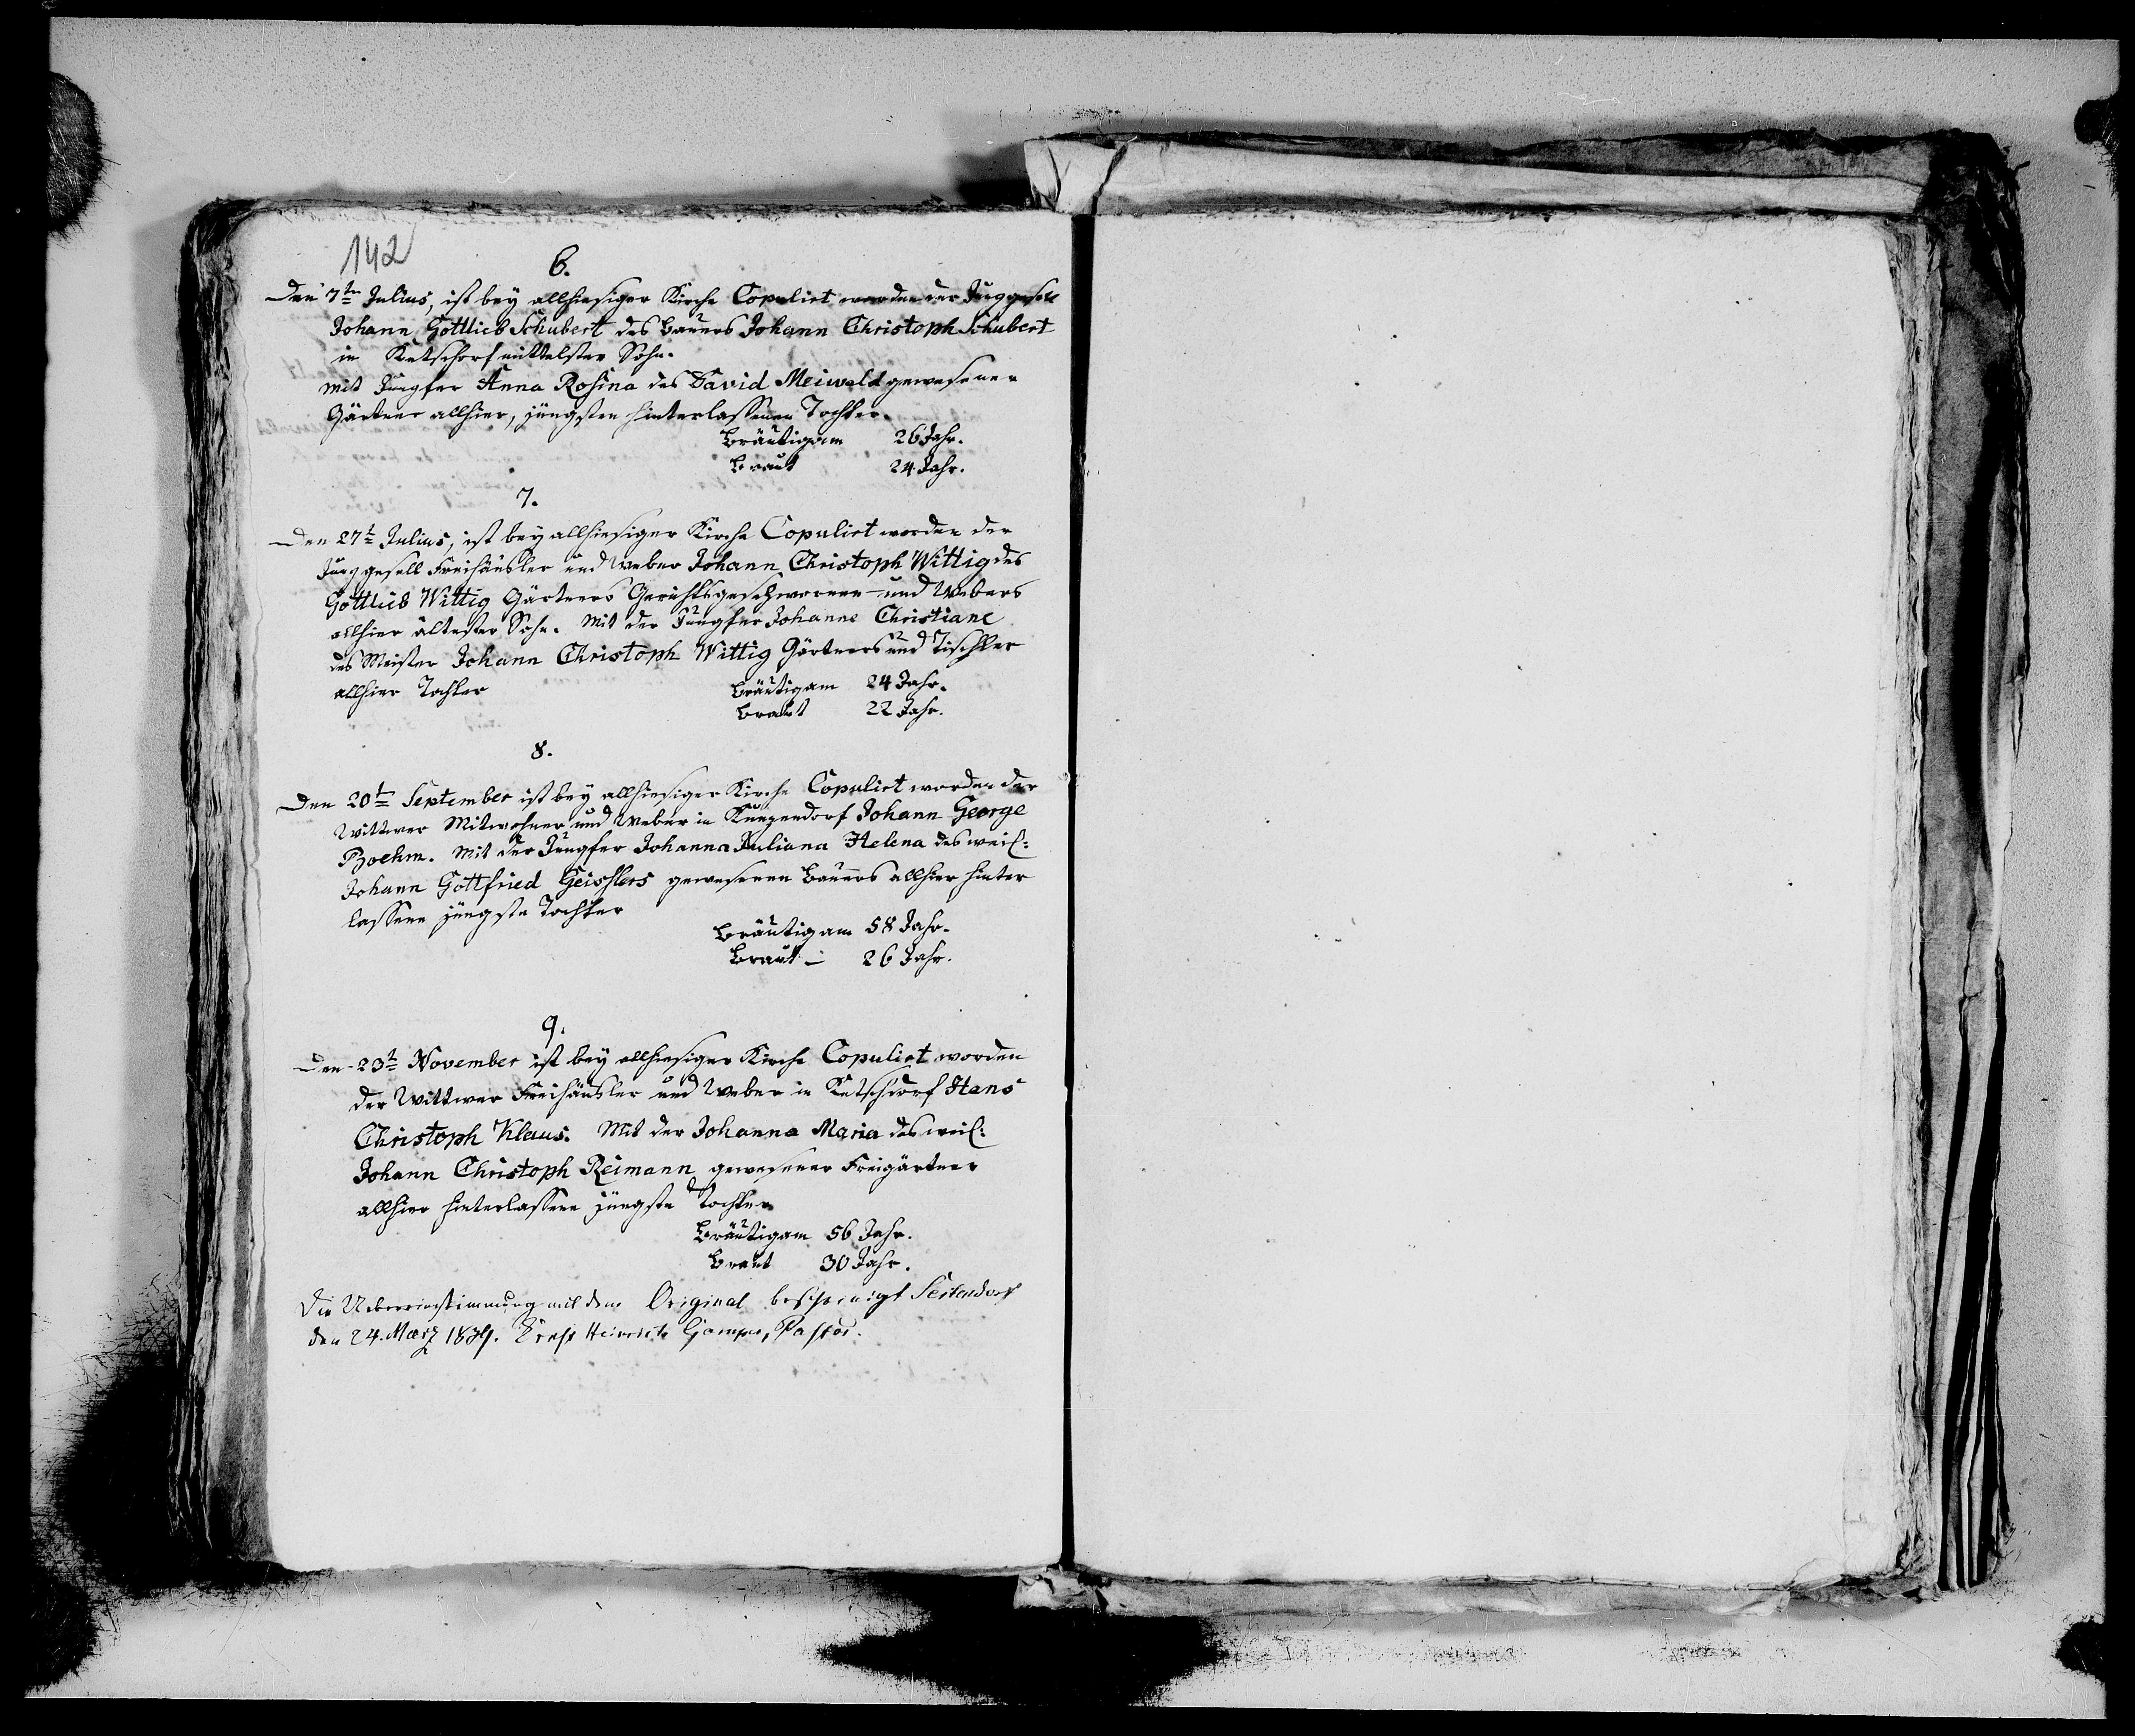 142
6.
Den 7ten Julius, ist bey allhiesiger Kirche Copulirt worden der Junggesell
Johann Gottlieb Schubert des Bauers Johann Christoph Schubert
in Ketschdorf mittelster Sohn.
mit Jungfer Anna Rosina des David Meiwald gewesener
Gärtner allhier, jüngsten hinterlaßenen Tochter.
Bräutigam 26 Jahr.
Braut 24 Jahr.
7.
Den 27t Julius, ist bey allhiesiger Kirche Copulirt worden der
Junggesell Freihäusler und Weber Johann Christoph Wittig des
Gottlieb Wittig Gärtners Gerichtsgeschworner und Webers
allhier ältester Sohn. Mit der Jungfer Johanne Christiane
des Meister Johann Christoph Wittig Gärtners und Tischler
allhier Tochter
Bräutigam 24 Jahr.
Braut 22 Jahr.
8.
Den 20t September ist bey allhiesiger Kirche Copulirt worden der
Wittwer Mitwohner und Weber in Kunzendorf Johann George
Boehm. Mit der Jungfer Johanna Juliana Helena des weil:
Johann Gottfried Geißlers gewesenen Bauers allhier hinter
laßene jüngste Tochter
Bräutigam 58 Jahr.
Braut – 26 Jahr.
9.
Den 23t November ist bey allhiesiger Kirche Copulirt worden
der Wittwer Freihäusler und Weber in Ketschdorf Hans
Christoph Klaus. Mit der Johanna Maria des weil:
Johann Christoph Reimann gewesener Freigärtner
allhier hinterlaßene jüngste Tochter
Bräutigam 56 Jahr.
Braut 30 Jahr.
Die Uebereinstimmung mit dem Original bescheinigt Seitendorf
den 24. März 1834. Ernst Heinrich Pastor.